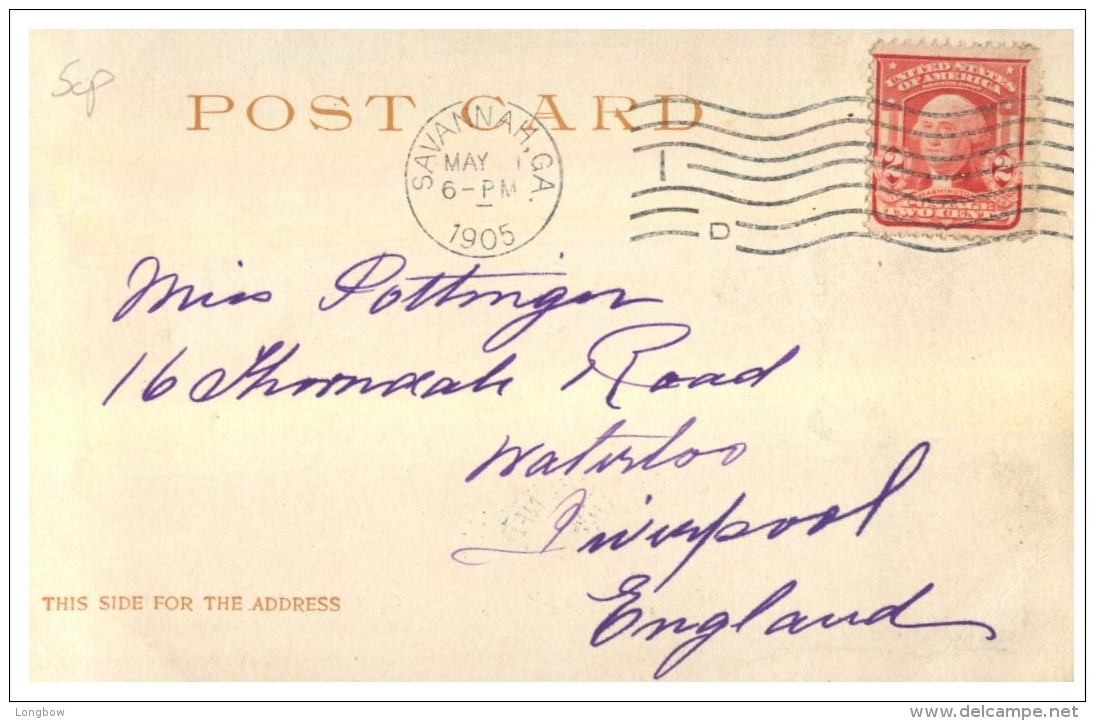 5cp
POST CARD
SAVANNAH, GA.
MAY 1
6-PM
1905
1
D
UNITED STATES
OF AMERICA
2 2
WASHINGTON
POSTAGE
TWO CENTS
Miss Pottinger
16 Thorndale Road
Waterloo
Liverpool
England
THIS SIDE FOR THE ADDRESS
Longbow
www.delcampe.net